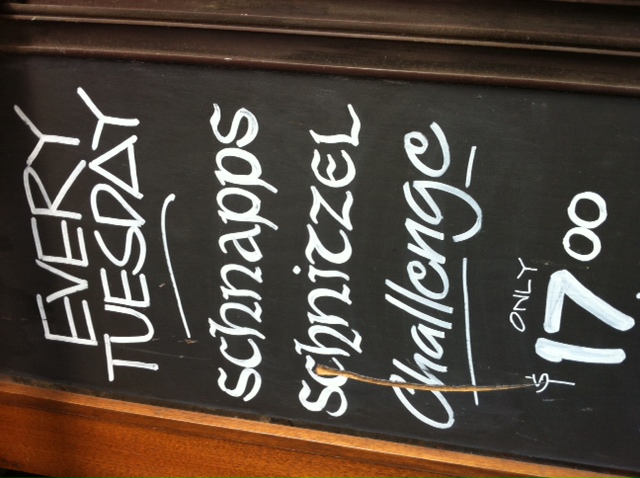 EVERY
TUESDAY
schnapps
schnitzel
Challenge
ONLY
$17.00